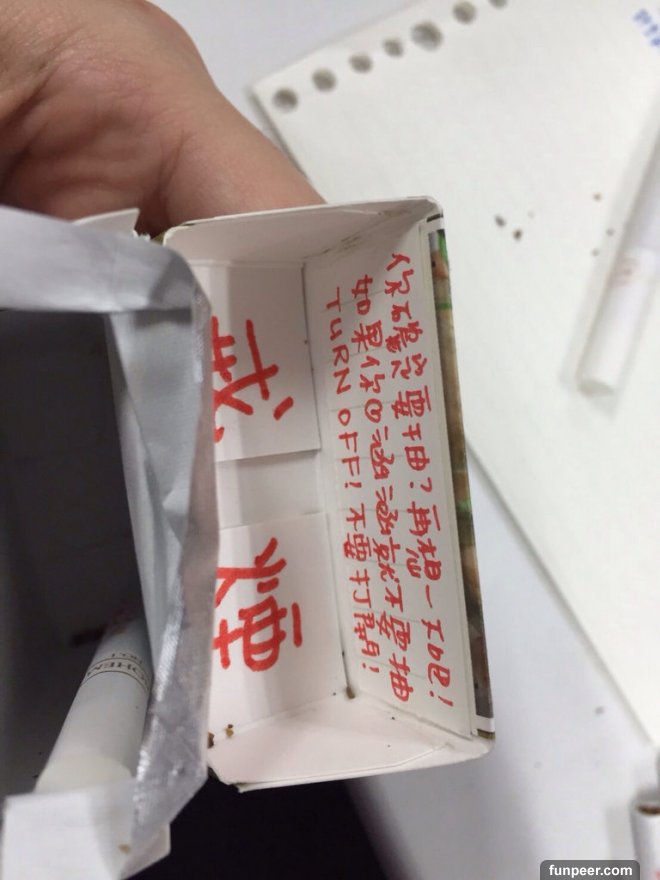 你確定要抽?再想一下吧!
如果你♡涵涵就不要抽
TURN OFF! 不要打開!
戒煙
BOHEM
No.1
funpeer.com